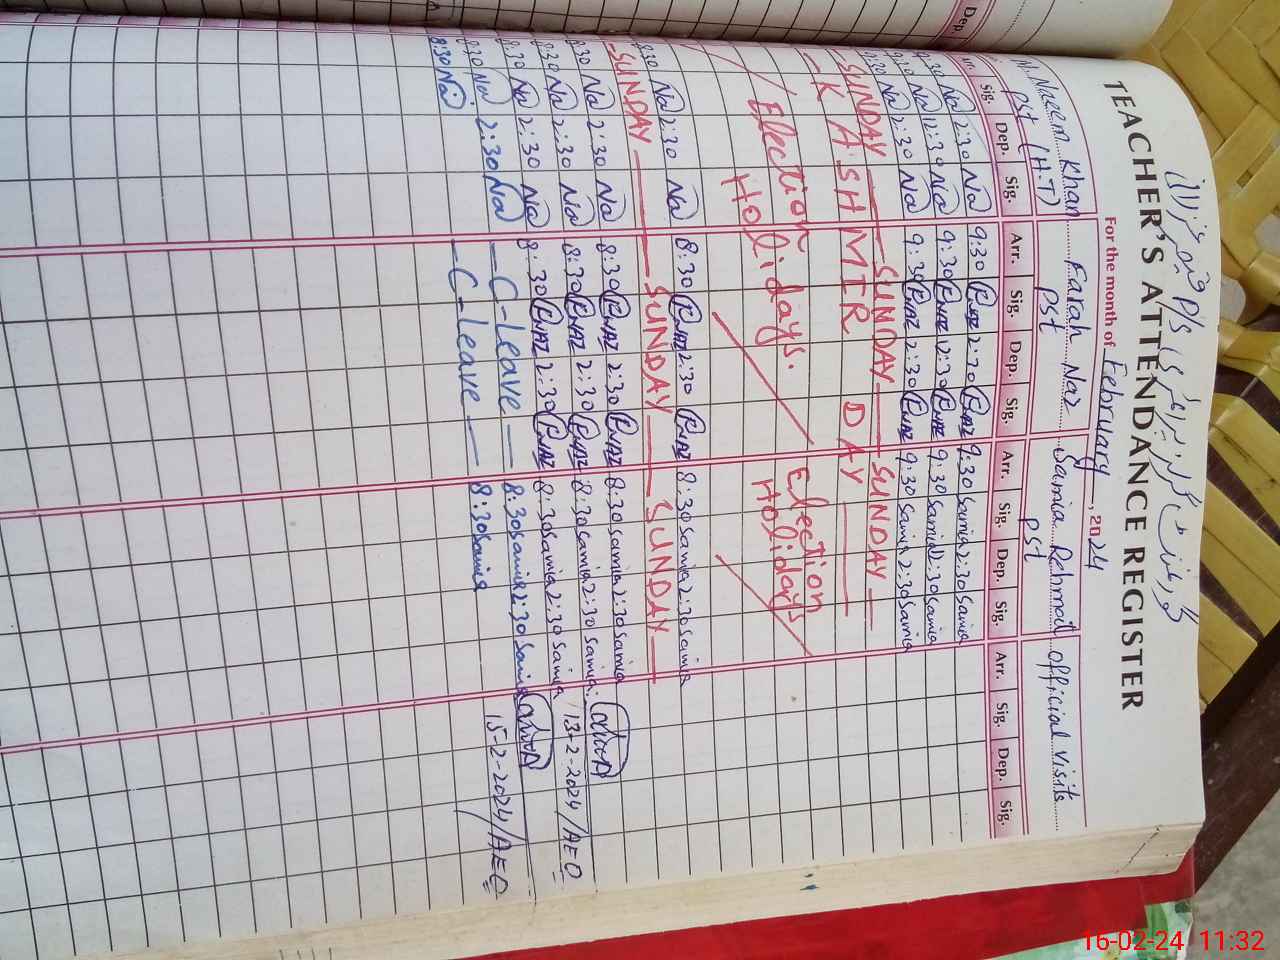 TEACHER'S ATTENDANCE REGISTER
For the month of February, 2024
M. Naeem Khan Farah Naz Samia Rehmat official visits
PST (H.T) PST PST
Dep.
Arr. Sig. Dep. Sig. Arr. Sig. Dep. Sig. Arr. Sig. Dep. Sig. Arr. Sig. Dep. Sig.
Na 2:30 Na 9:30 F.Naz 2:30 F.Naz 9:30 Samia 2:30 Samia
9:30 Na 12:30 Na 9:30 F.Naz 12:30 F.Naz 9:30 Samia 12:30 Samia
9:30 Na 2:30 Na 9:30 F.Naz 2:30 F.Naz 9:30 Samia 2:30 Samia
SUNDAY — SUNDAY — SUNDAY —
KASHMIR DAY
Election Holidays. Election Holidays
8:30 Na 2:30 Na 8:30 F.Naz 2:30 F.Naz 8:30 Samia 2:30 Samia
SUNDAY — SUNDAY — SUNDAY
8:30 Na 2:30 Na 8:30 F.Naz 2:30 F.Naz 8:30 Samia 2:30 Samia
8:30 Na 2:30 Na 8:30 F.Naz 2:30 F.Naz 8:30 Samia 2:30 Samia 13-2-2024/AEO
8:30 Na 2:30 Na 8:30 F.Naz 2:30 F.Naz 8:30 Samia 2:30 Samia
8:30 Na 2:30 Na — C-Leave — 8:30 Samia 2:30 Samia 15-2-2024/AEO
8:30 Na — C-Leave — 8:30 Samia
16-02-24 11:32